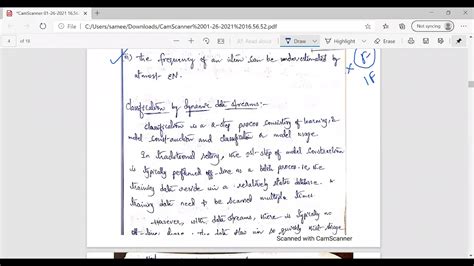 *CamScanner 01-26-2021 16.56.52
C:/Users/samee/Downloads/CamScanner%2001-26-2021%2016.56.52.pdf
Not syncing
of 18
ii) the frequency of an item can be underestimated by
atmost εN.
8
18
Classification by Dynamic data streams:-
Classification is a 2-step process consisting of learning, &
model construction and classification & model usage.
In traditional setting, the 1st step of model construction
is typically performed off-line as a batch process. i.e, the
training data reside in a relatively static database. &
training data need to be scanned multiple times
However, with data streams, there is typically no
off-line phase, the data flow in so quickly that storage
Scanned with CamScanner